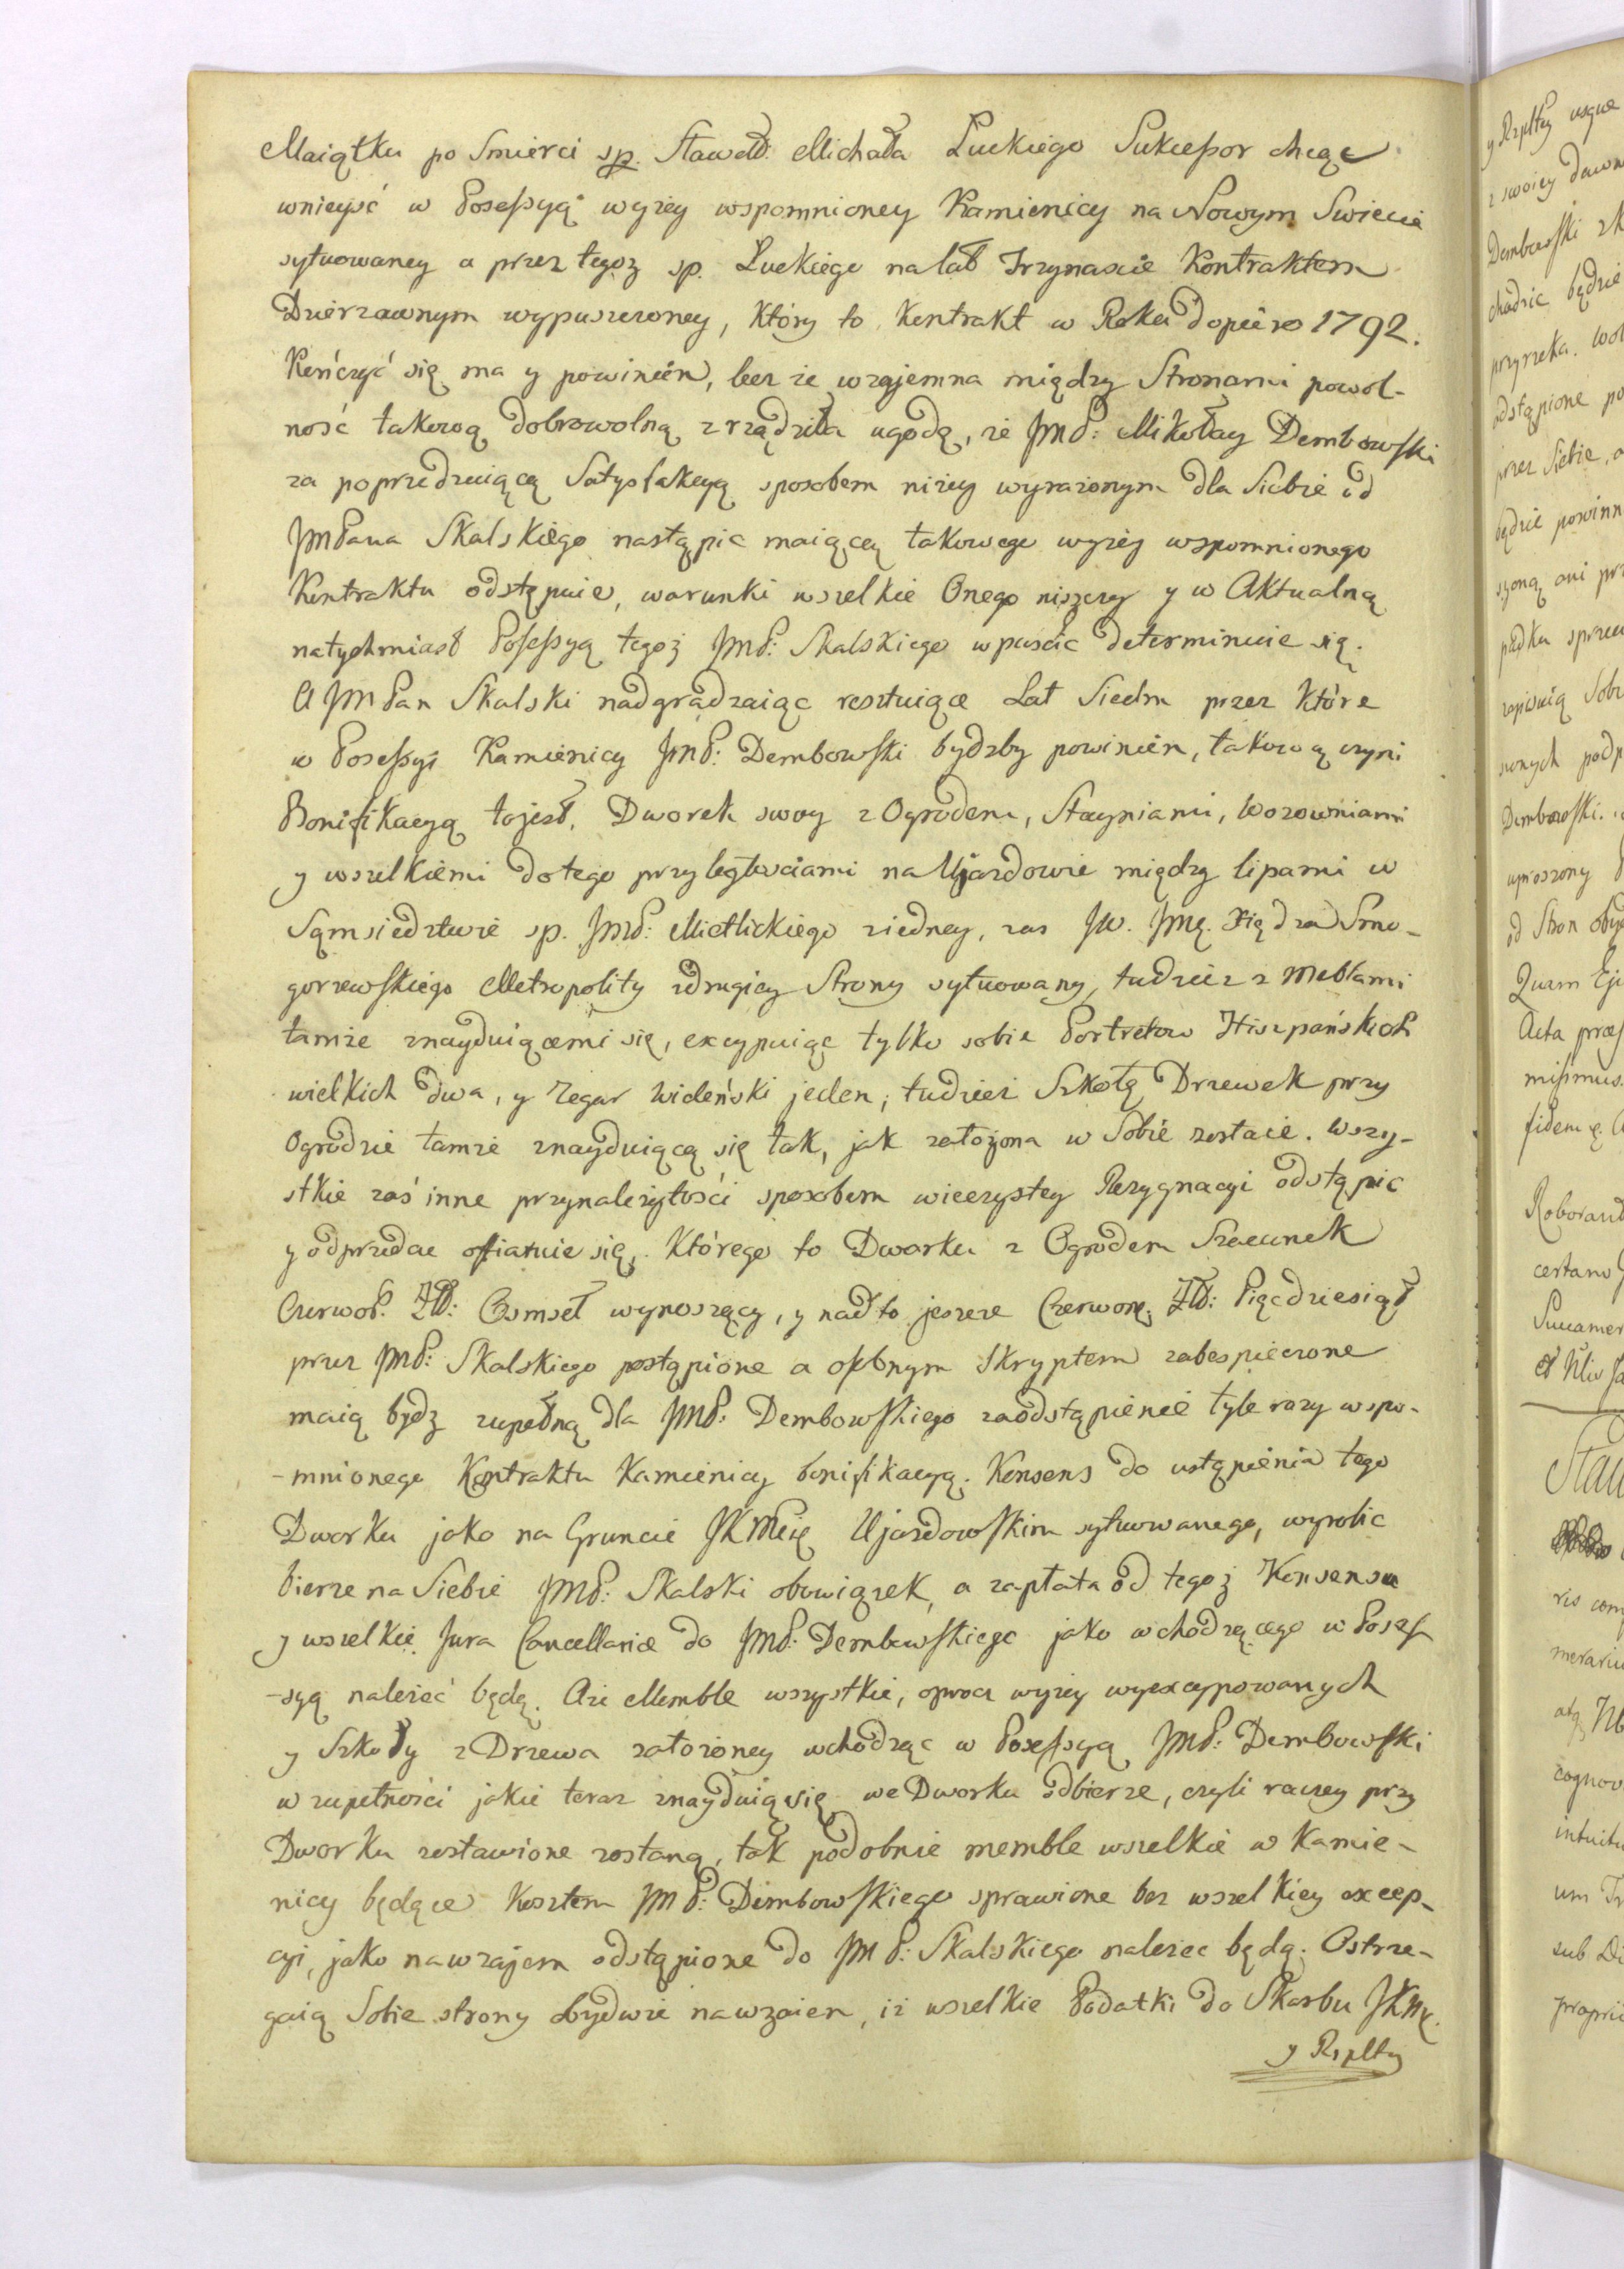 Maiątku po Smierci sp. Sławetł. Michała Luckiego Sukceßor chcąc
wnieyść w Poseßyą wyzey wspomnioney Kamienicy na Nowym Swiecie
sytuowaney a przez tegoz sp. Luckiego na lat Trzynascie Kontraktem
Dzierzawnym wypuszczoney, Który to Kontrakt w Roku dopiéro 1792.
Kończyć się ma y powinién, lecz ze wzajemna między Stronami powol-
ność takową dobrowolną zrządziła ugodę, ze JmP: Mikołay Dembowski
za poprzedzaiącą Satysfakcyą sposobem nizey wyrazonym dla Siebie od
JmPana Skalskiégo nastąpic maiącą takowego wyzey wspomnionego
Kontraktu odstępuie, warunki wszelkie Onego niszczy y w Aktualną
natychmiast Poseßyą tegoż JmP: Skalskiego wpuścić determinuie się.
A JmPan Skalski nadgradzaiąc resztuiące Lat Siedm przez Które
w Poseßyi Kamienicy JmP: Dembowski bydzby powinién, takową czyni
Bonifikacyą tojest, Dworek swoy z Ogrodem, Stayniami, Wozowniami
y wszelkiémi do tego przyległosciami na Ujazdowie między lipami w
Sąmsiedztwie sp. JmP: Mietlickiego ziedney, zas JW. Jmę. Xiędza Smo-
gorzewskiego Metropolity zdrugiey Strony sytuowany, tudziez z Meblami
tamze znayduiącemi się, excypuiąc tylko sobie Portretow Hiszpańskich
wielkich dwa, y Zegar Widéński jeden, tudziez Szkołę Drzewek przy
Ogrodzie tamze znayduiącą się tak, jak założona w Sobie zostaie. Wszy-
stkie zaś inne przynależytości sposobem wieczystey Rezygnacyi odstąpic
y odprzedac ofiaruie się. Którego to Dworku z Ogrodem Szacunek
Czerwon. Zł: Osmset wynoszący, y nad to jeszcze Czerwone Zł: Pięcdziesiąt
przez JmP: Skalskiego postąpione a osobnym Skryptem zabespieczone
maią bydz zupełną dla JmP: Dembowskiego za odstąpienie tyle razy wspo-
-mnionego Kontraktu Kamienicy bonifikacyą. Konsens do ustąpienia tego
Dworku jako na Gruncie JKMci Ujazdowskim sytuowanego, wyrobic
bierze na Siebie JmP: Skalski obowiązek, a zapłata od tegoż Konsensu
y wszelkie Jura Cancellariæ do JmP: Dembowskiego jako wchodzącego w Poses
-syą należeć będą. Aże Memble wszystkie, oprocz wyzey wyexcypowanych
y Szkoły z Drzewa założoney wchodząc w Poseßyą JmP: Dembowski
w zupełności jakie teraz znayduią się we Dworku odbierze, czyli raczey przy
Dworku zostawione zostaną, tak podobnie memble wszelkie w Kamie-
nicy będące Kosztem JmP: Dembowskiego sprawione bez wszelkiey excep-
cyi, jako nawzajem odstąpione do JmP: Skalskiego nalezec będą. Ostrze-
gaią Sobie strony obydwie nawzaiem, iż wszelkie Podatki do Skarbu JKM.
y Rzplty